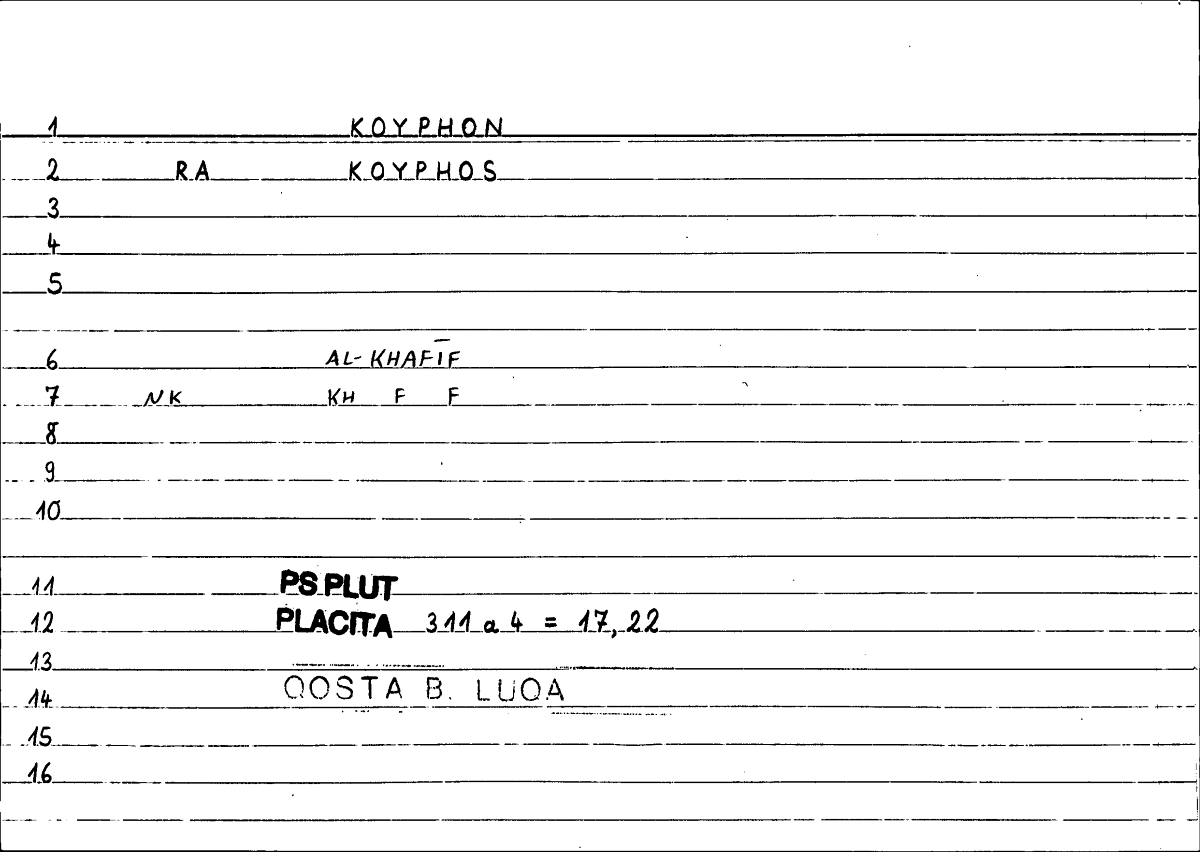 1 KOYPHON
2 RA KOYPHOS
3
4
5
6 AL-KHAFĪF
7 NK KH F F
8
9
10
11 PS PLUT
12 PLACITA 311 a 4 = 17, 22
13
14 QOSTA B. LUQA
15
16